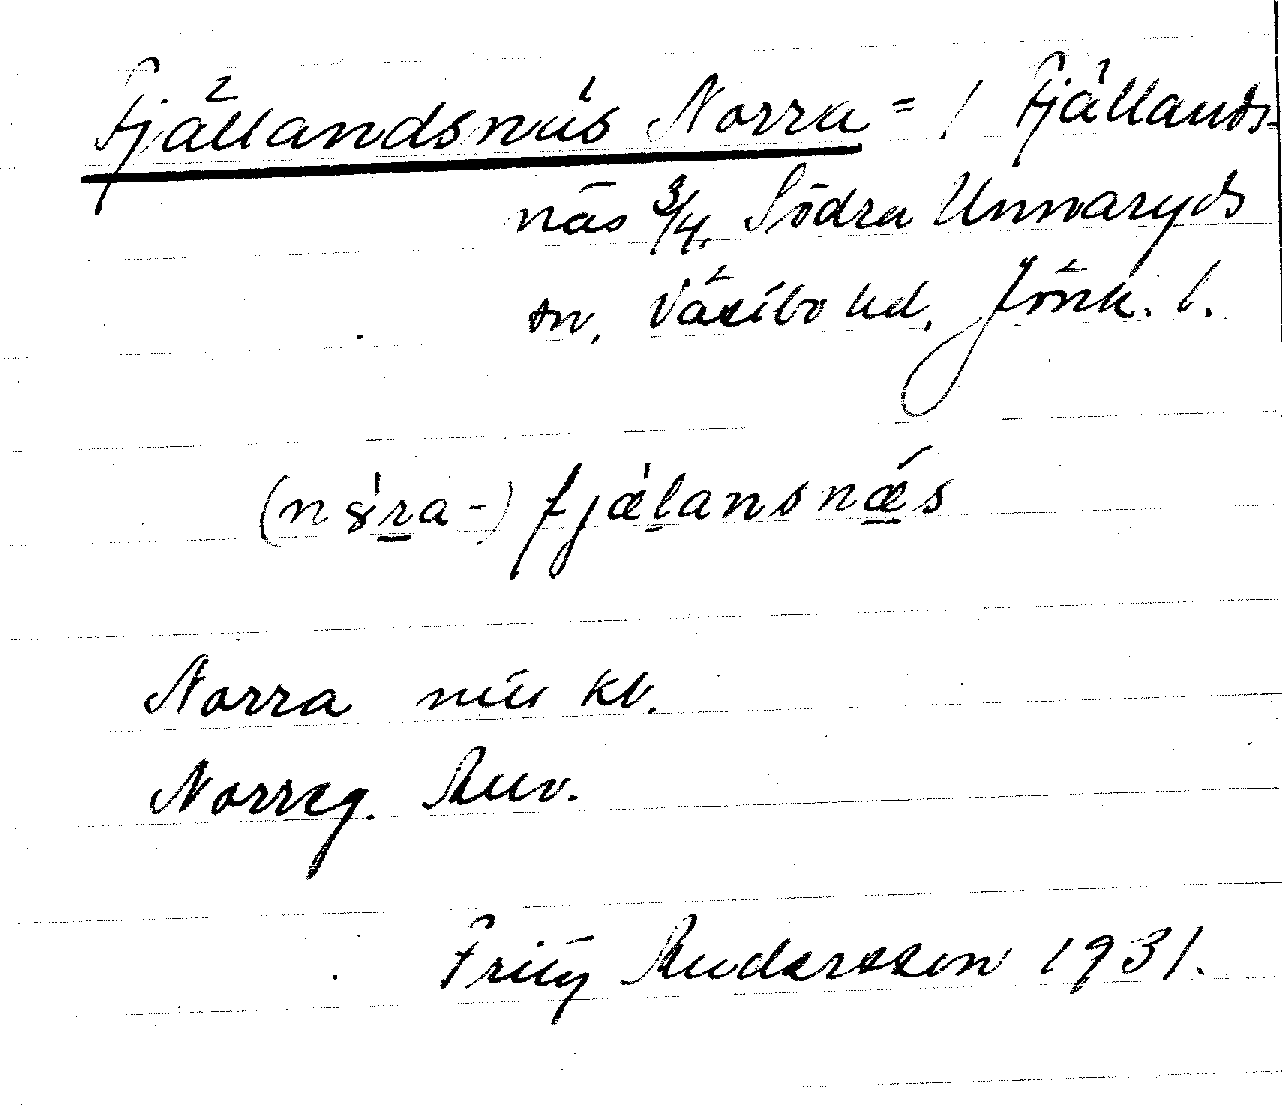 Fjällandsnäs Norra = 1 Fjällands-
näs 3/4. Södra Unnaryds
sn, Västbo hd. Jönk. l.
fjælansnǽs
Norra
Norreg.
Andersson 1931.